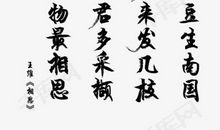 豆生南国
来发几枝
君多采撷
物最相思
王维《相思》